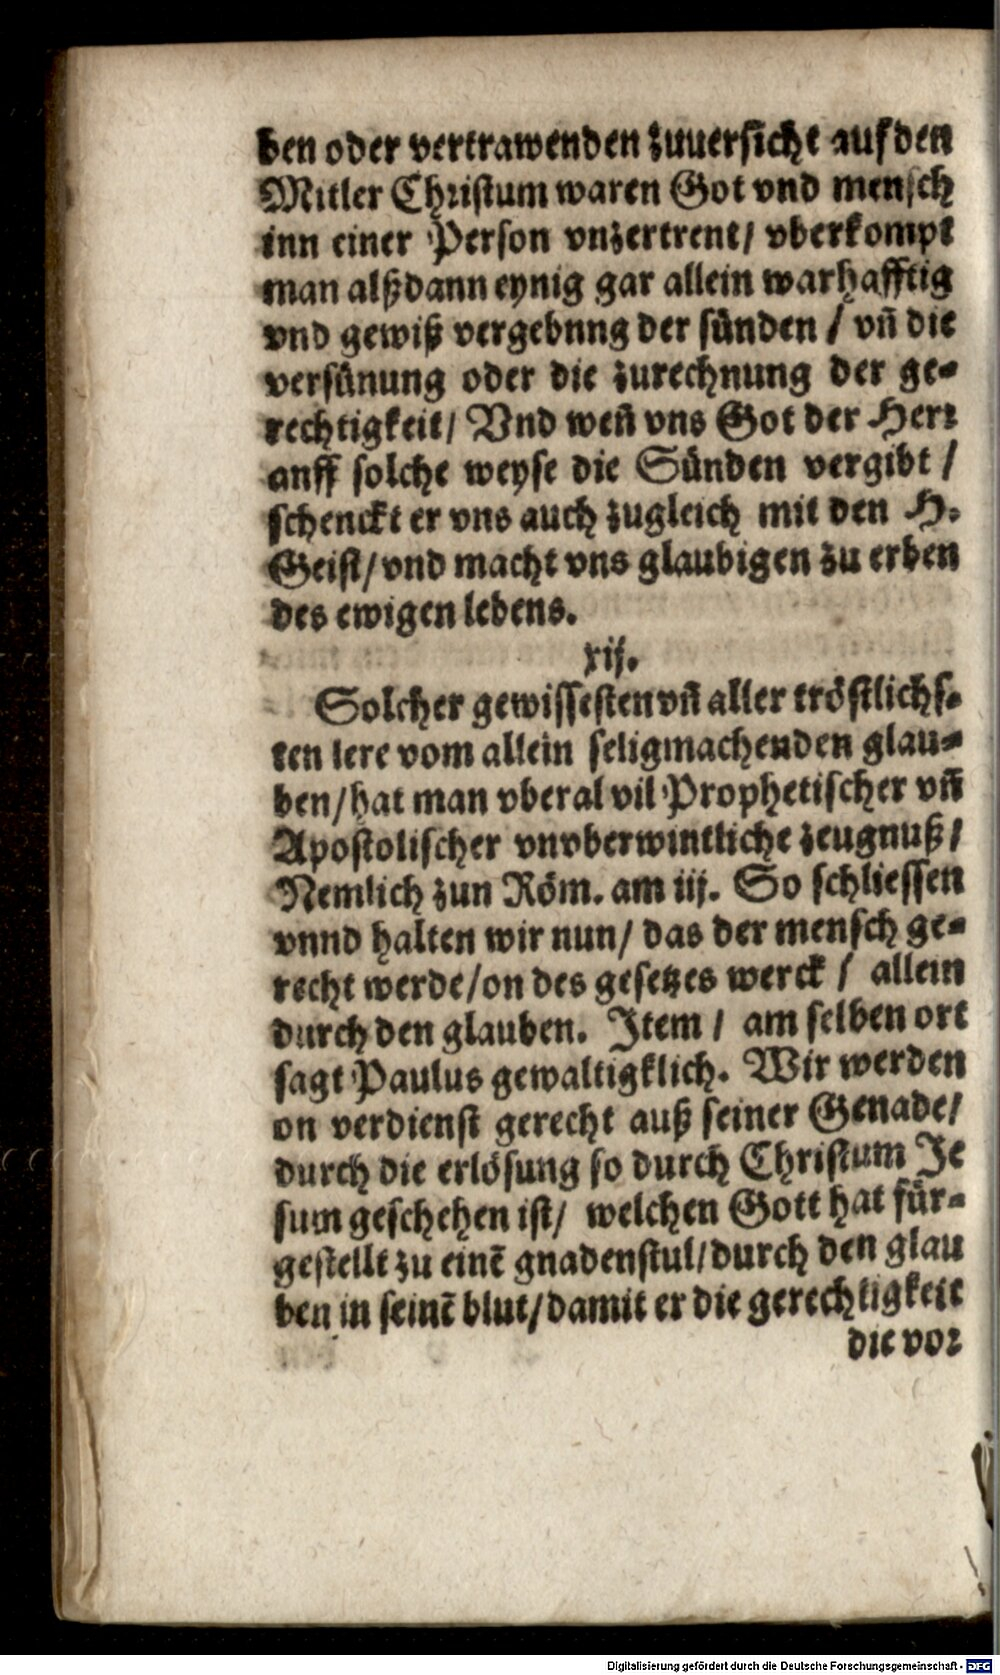 ben oder vertrawenden zuuersicht auf den
Mitler Christum waren Got vnd mensch
inn einer Person vnzertrent/ vberkompt
man alßdann eynig gar allein warhafftig
vnd gewiß vergebnng der sünden / vn̄ die
versünung oder die zurechnung der ge-
rechtigkeit/ Vnd wen̄ vns Got der Herr
anff solche weyse die Sünden vergibt /
schenckt er vns auch zugleich mit den H.
Geist/ vnd macht vns glaubigen zu erben
des ewigen lebens.
xij.
Solcher gewissesten vn̄ aller tröstlichs-
ten lere vom allein seligmachenden glau-
ben/ hat man vberal vil Prophetischer vn̄
Apostolischer vnvberwintliche zeugnuß/
Nemlich zun Röm. am iij. So schliessen
vnnd halten wir nun/ das der mensch ge-
recht werde/ on des gesetzes werck / allein
durch den glauben. Item / am selben ort
sagt Paulus gewaltigklich. Wir werden
on verdienst gerecht auß seiner Genade/
durch die erlösung so durch Christum Je
sum geschehen ist/ welchen Gott hat für-
gestellt zu einē gnadenstul/ durch den glau
ben in seinē blut/ damit er die gerechtigkeit
die vor
Digitalisierung gefördert durch die Deutsche Forschungsgemeinschaft - DFG